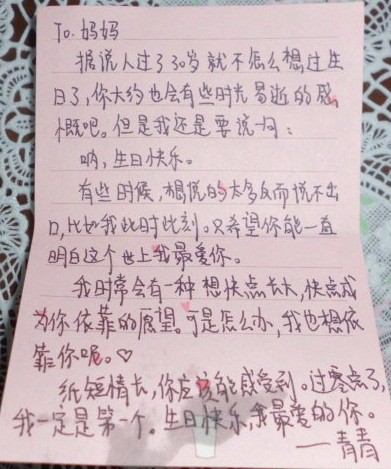 To. 妈妈
据说人过了30岁就不怎么想过生
日了,你大约也会有些时光易逝的感
概吧。但是我还是要说一句:
呐,生日快乐。
有些时候,想说的太多反而说不出
口,比如我此时此刻。只希望你能一直
明白这个世上我最爱你。
我时常会有一种想快点长大,快点成
为你依靠的愿望。可是怎么办,我也想依
靠你呢。♡
纸短情长,你应该能感受到。过零点了,
我一定是第一个。生日快乐,我最爱的你。
——青青